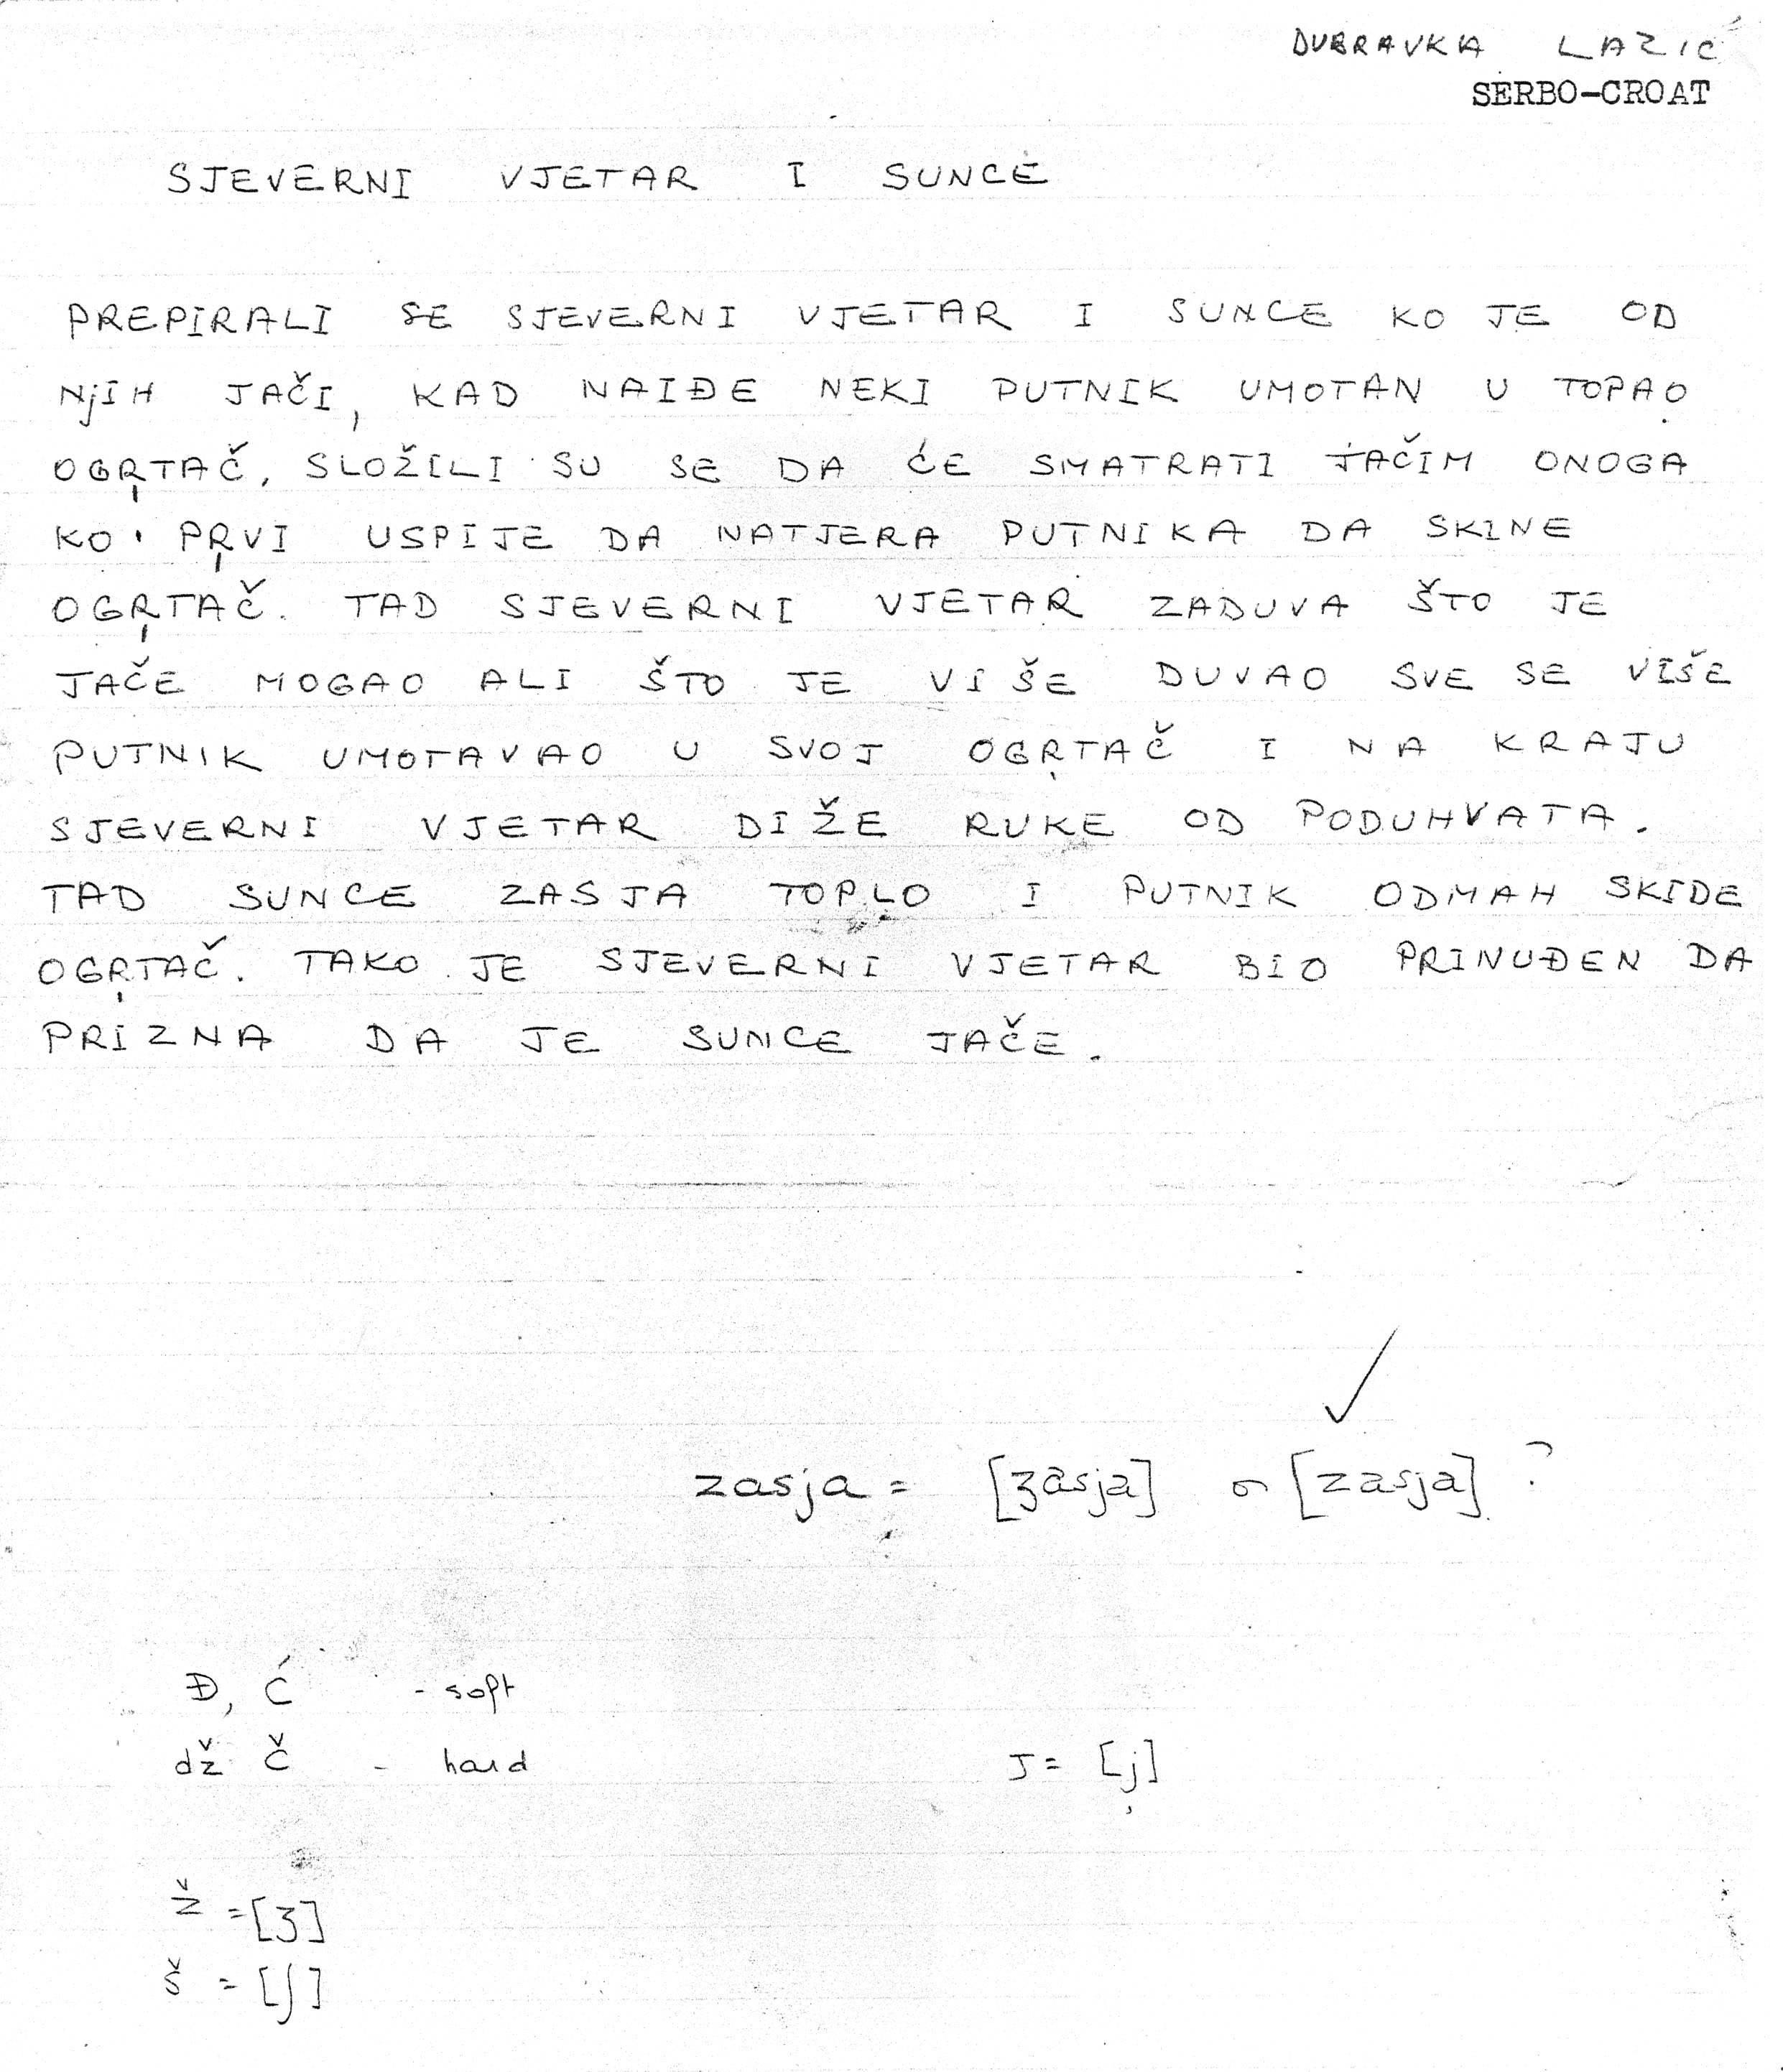 DUBRAVKA LAZIĆ
SERBO-CROAT
SJEVERNI VJETAR I SUNCE
PREPIRALI SE SJEVERNI VJETAR I SUNCE KO JE OD
NjIH JAČI, KAD NAIĐE NEKI PUTNIK UMOTAN U TOPAO
OGR̩TAČ, SLOŽILI SU SE DA ĆE SMATRATI JAČIM ONOGA
KO PR̩VI USPIJE DA NATJERA PUTNIKA DA SKINE
OGR̩TAČ. TAD SJEVERNI VJETAR ZADUVA ŠTO JE
JAČE MOGAO ALI ŠTO JE VIŠE DUVAO SVE SE VIŠE
PUTNIK UMOTAVAO U SVOJ OGR̩TAČ I NA KRAJU
SJEVERNI VJETAR DIŽE RUKE OD PODUHVATA.
TAD SUNCE ZASJA TOPLO I PUTNIK ODMAH SKIDE
OGR̩TAČ. TAKO JE SJEVERNI VJETAR BIO PRINUĐEN DA
PRIZNA DA JE SUNCE JAČE.
✓
zasja = [ʒasja] or [zasja] ?
Đ, Ć - soft
dž Č - hard J = [j]
Ž = [ʒ]
š = [ʃ]